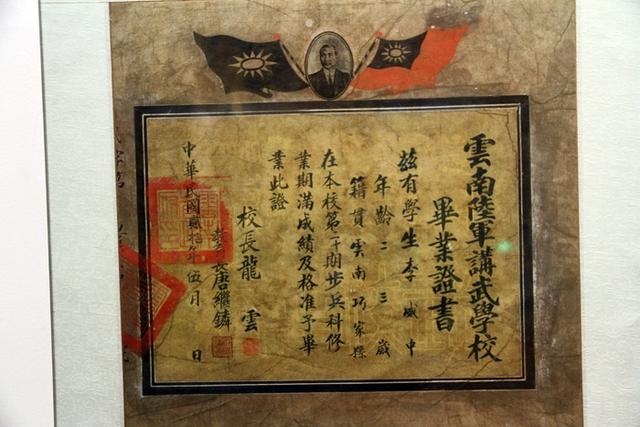 雲南陸軍講武學校
畢業證書
茲有學生李咸中
年齡二三歲
籍貫雲南巧家縣
在本校第二十期步兵科修
業期滿成績及格准予畢
業此證
校長龍雲
唐繼鏻
中華民國貳拾年伍月 日